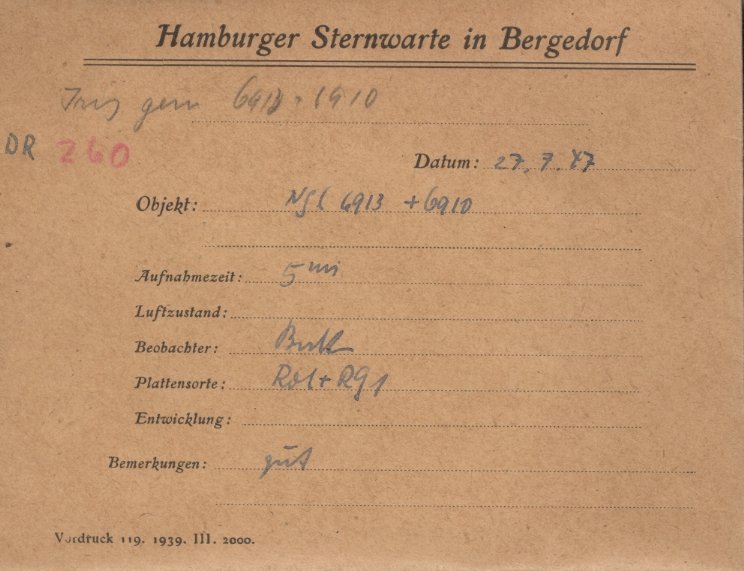 Hamburger Sternwarte in Bergedorf
6913 + 6910
DR 260
Datum: 27. 7. 47
Objekt: NGC 6913 + 6910
Aufnahmezeit: 5 min
Luftzustand:
Beobachter:
Plattensorte: Rot + RG1
Entwicklung:
Bemerkungen: gut
Vordruck 119. 1939. III. 2000.